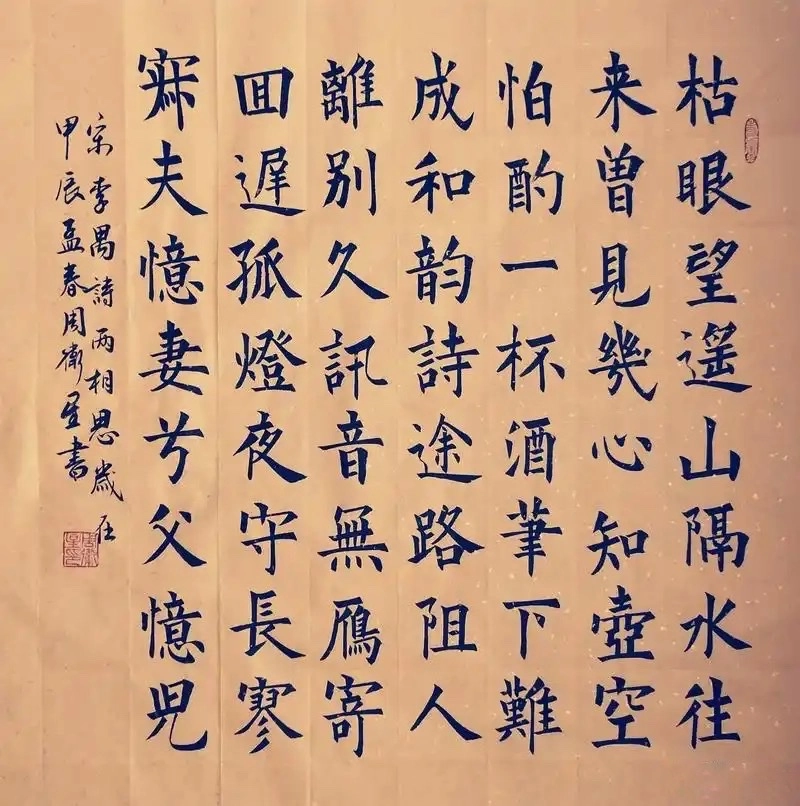 枯眼望遥山隔水往
来曾見幾心知壺空
怕酌一杯酒筆下難
成和韵詩途路阻人
離別久訊音無鴈寄
囬遲孤燈夜守長寥
寂夫憶妻兮父憶兒
宋李禺詩兩相思歲在
甲辰孟春周衛星書